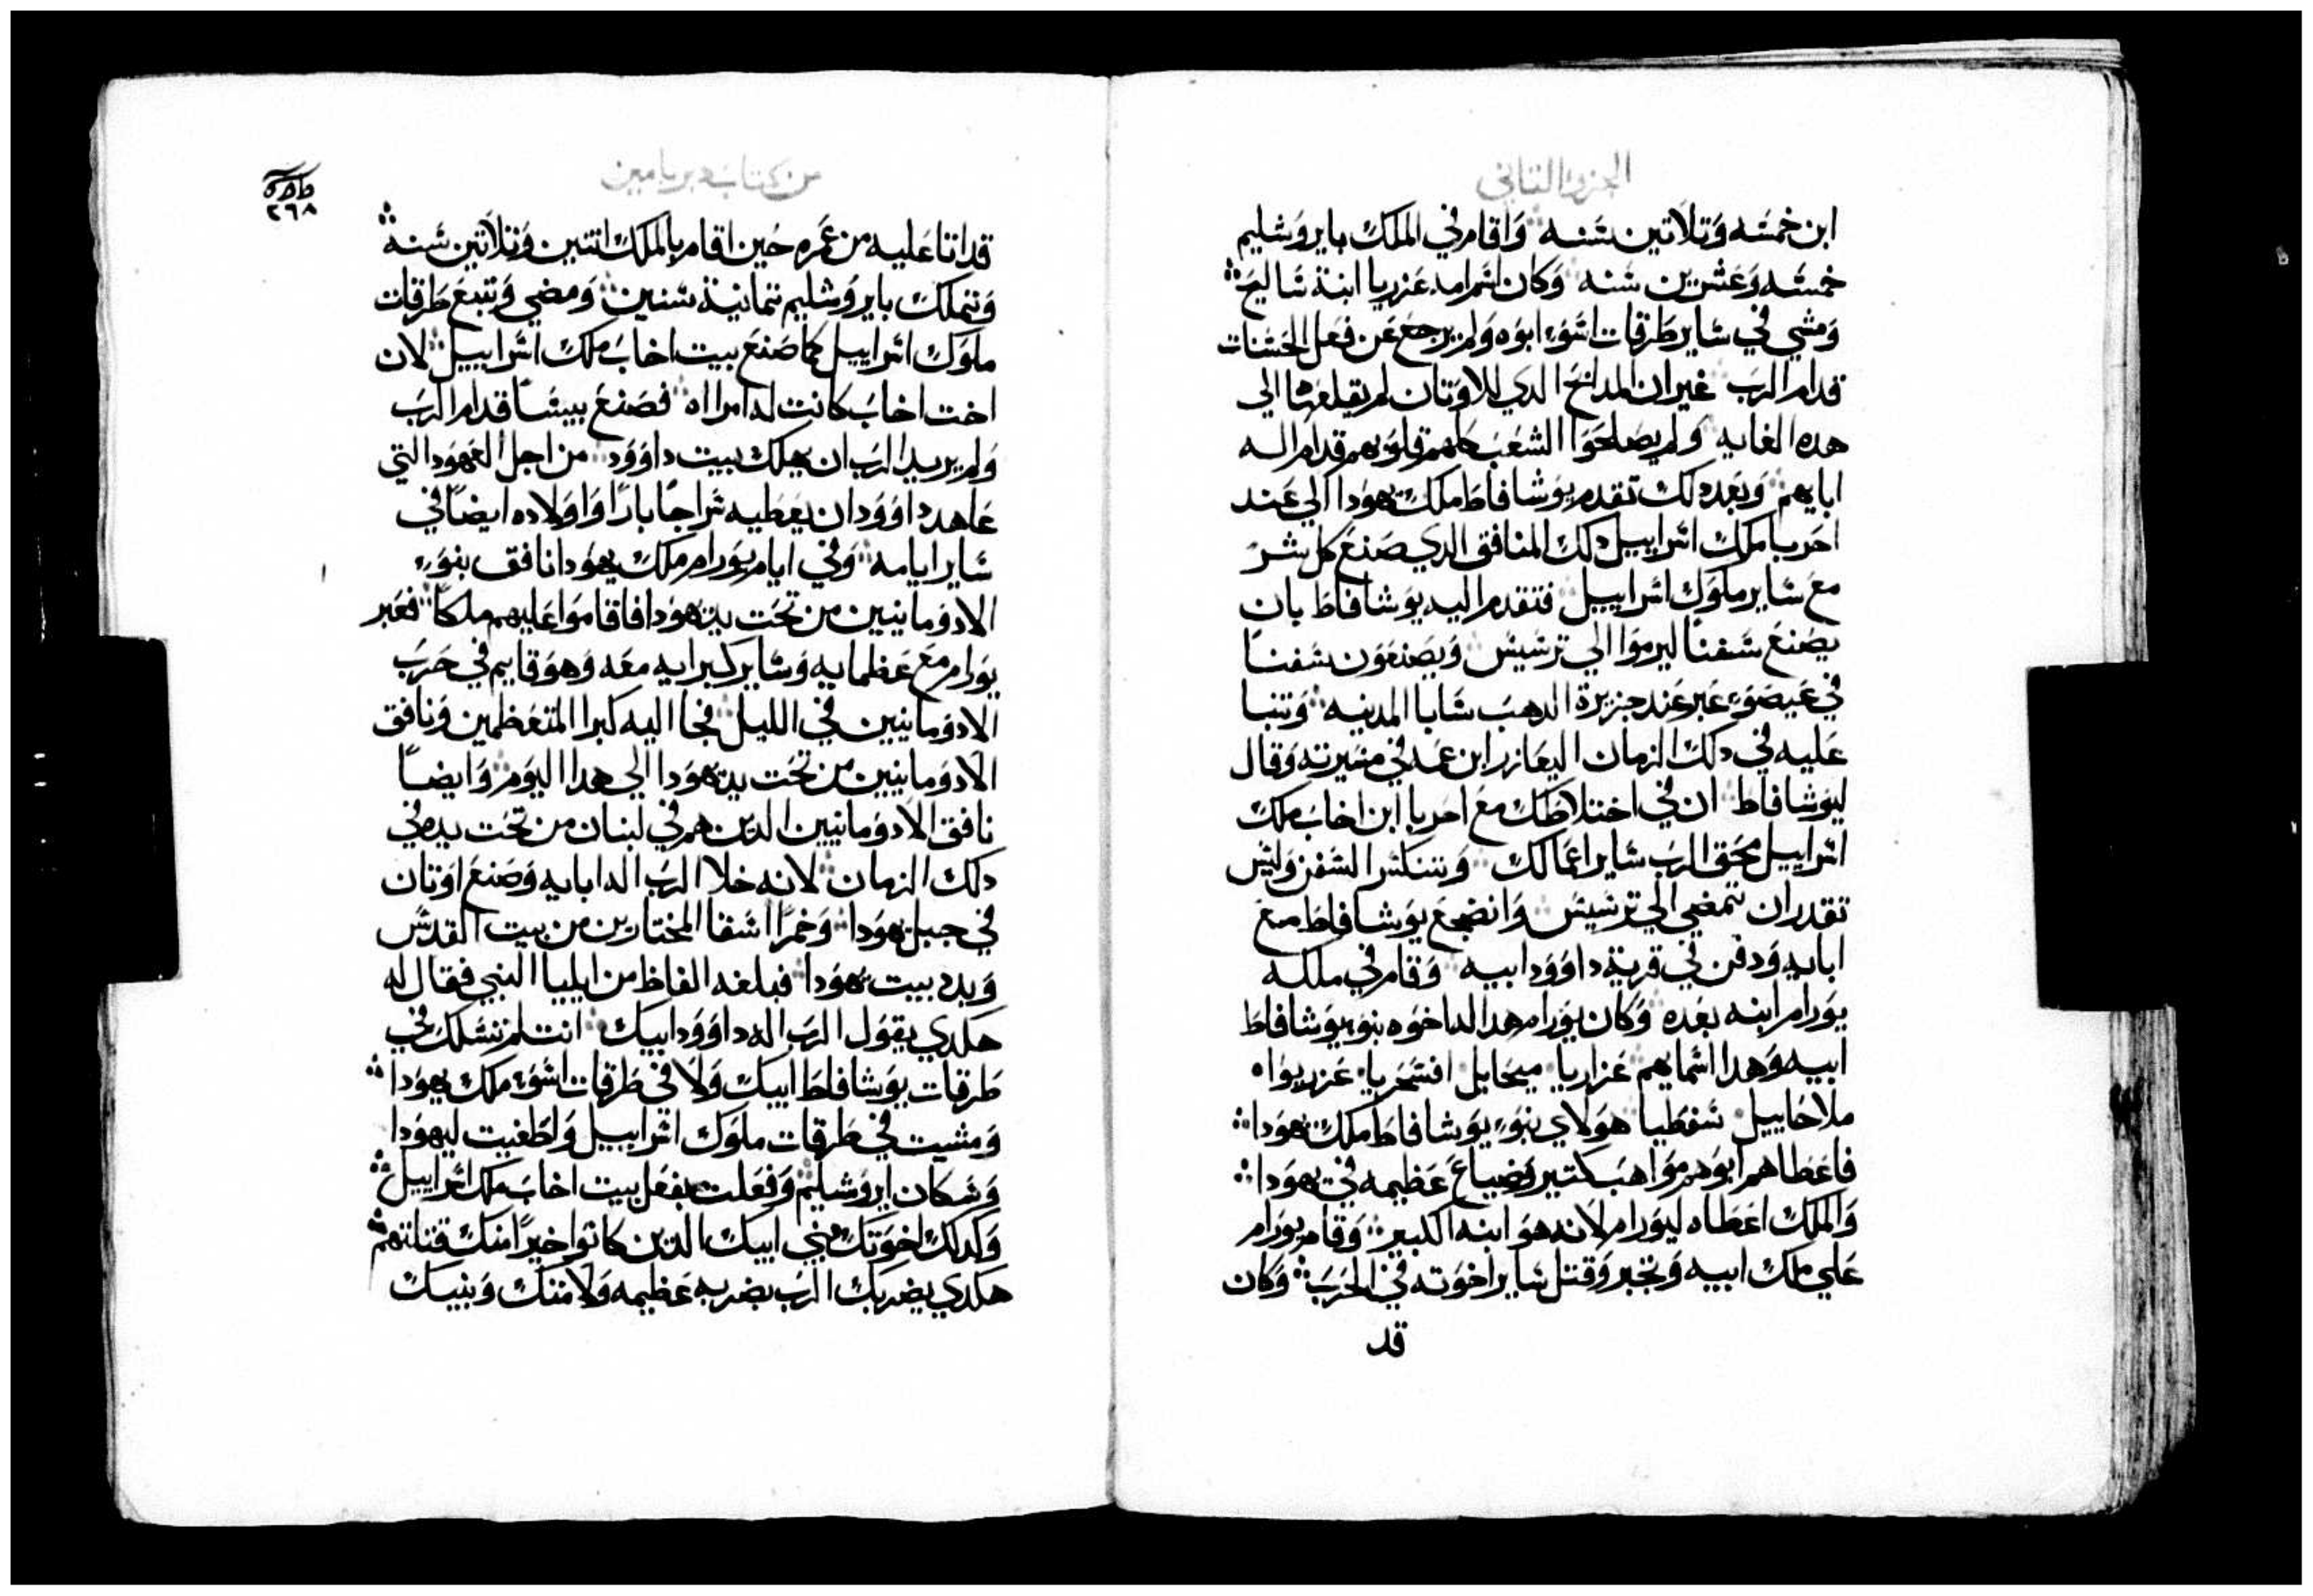 الجزو التاني
ابن خمسه وتلاتين سنه واقام في الملك بايروشليم
خمسه وعشرين سنه وكان اسم امه عزريا ابنة ساليح
ومشي في ساير طرقات اسوء ابوه ولم يرجع عن فعل الحسنات
قدام الرب غير ان المدابح الدي للاوتان لم يقلعها الي
هده الغايه ولم يصلحوا الشعب كلهم قلوبهم قدام اله
ابايهم وبعد دلك تقدم يوشافاط ملك يهودا الي عند
احربا ملك اسراييل دلك المنافق الدي صنع كل شر
مع ساير ملوك اسراييل فتقدم اليه يوشافاط بان
يصنع سفنا ليرموا الي ترسيس ويصنعون سفنا
في عيصو عبر عند جزيرة الدهب سابا المدينه وتنبا
عليه في دلك الزمان اليعازر ابن عمه في مسيرته وقال
ليوشافاط ان في اختلاطك مع احربا ابن اخاب ملك
اسراييل محق الرب ساير اعمالك وستكسر السفن وليس
تقدر ان تمضي الي ترسيس وانضجع يوشافاط مع
ابايه ودفن في قرية داوود ابيه وقام في ملكه
يورام ابنه بعده وكان يورام هدا له اخوه بنو يوشافاط
ابيه وهدا اسمايهم عزاريا ميحايل افسحريا عزريوا
ملاخاييل سفطيا هولاي بنوء يوشافاط ملك يهودا
فاعطاهم ابوهم مواهب كتير وضياع عظيمه في يهودا
والملك اعطاه ليورام لانه هو ابنه الكبير وقام يورام
علي ملك ابيه وتجبر وقتل ساير اخوته في الحرب وكان
قد
من كتاب دبريامين
٢٦٨
قد اتا عليه من عمره حين اقام بالملك اتنين وتلاتين سنه
وتملك بايروشليم تمانية سنين ومضي وتبع طرقات
ملوك اسراييل كما صنع بيت اخاب ملك اسراييل لان
اخت اخاب كانت له امراه فصنع بيسا قدام الرب
ولم يريد الرب ان يهلك بيت داوود من اجل العهود التي
عاهد داوود ان يعطيه سراجا بارا واولاده ايضا في
ساير ايامه وفي ايام يورام ملك يهودا نافق بنوء
الادومانيين من تحت يد يهودا فاقاموا عليهم ملكا فعبر
يورام مع عظمايه وساير كبرايه معه وهو قايم في حرب
الادومانيين في الليل فجا اليه كبرا المتعظمين ونافق
الادومانيين من تحت يد يهودا الي هدا اليوم وايضا
نافق الادومانيين الدين هم في لبنان من تحت يده في
دلك الزمان لانه خلا الرب اله ابايه وصنع اوتان
في جبل يهودا وخمرا اسقا المختارين من بيت القدس
وبدد بيت يهودا فبلغه الفاظ من ايليا النبي فقال له
هكدي يقول الرب اله داوود ابيك انت لم تسلك في
طرقات يوشافاط ابيك ولا في طرقات اسوء ملك يهودا
ومشيت في طرقات ملوك اسراييل واطغيت ليهودا
وسكان ايروشليم وفعلت بفعل بيت اخاب ملك اسراييل
وكدلك اخوتك بني ابيك الدين كانوا خيرا منك قتلتهم
هكدي يضربك الرب بضربه عظيمه ولامتك وبنيك